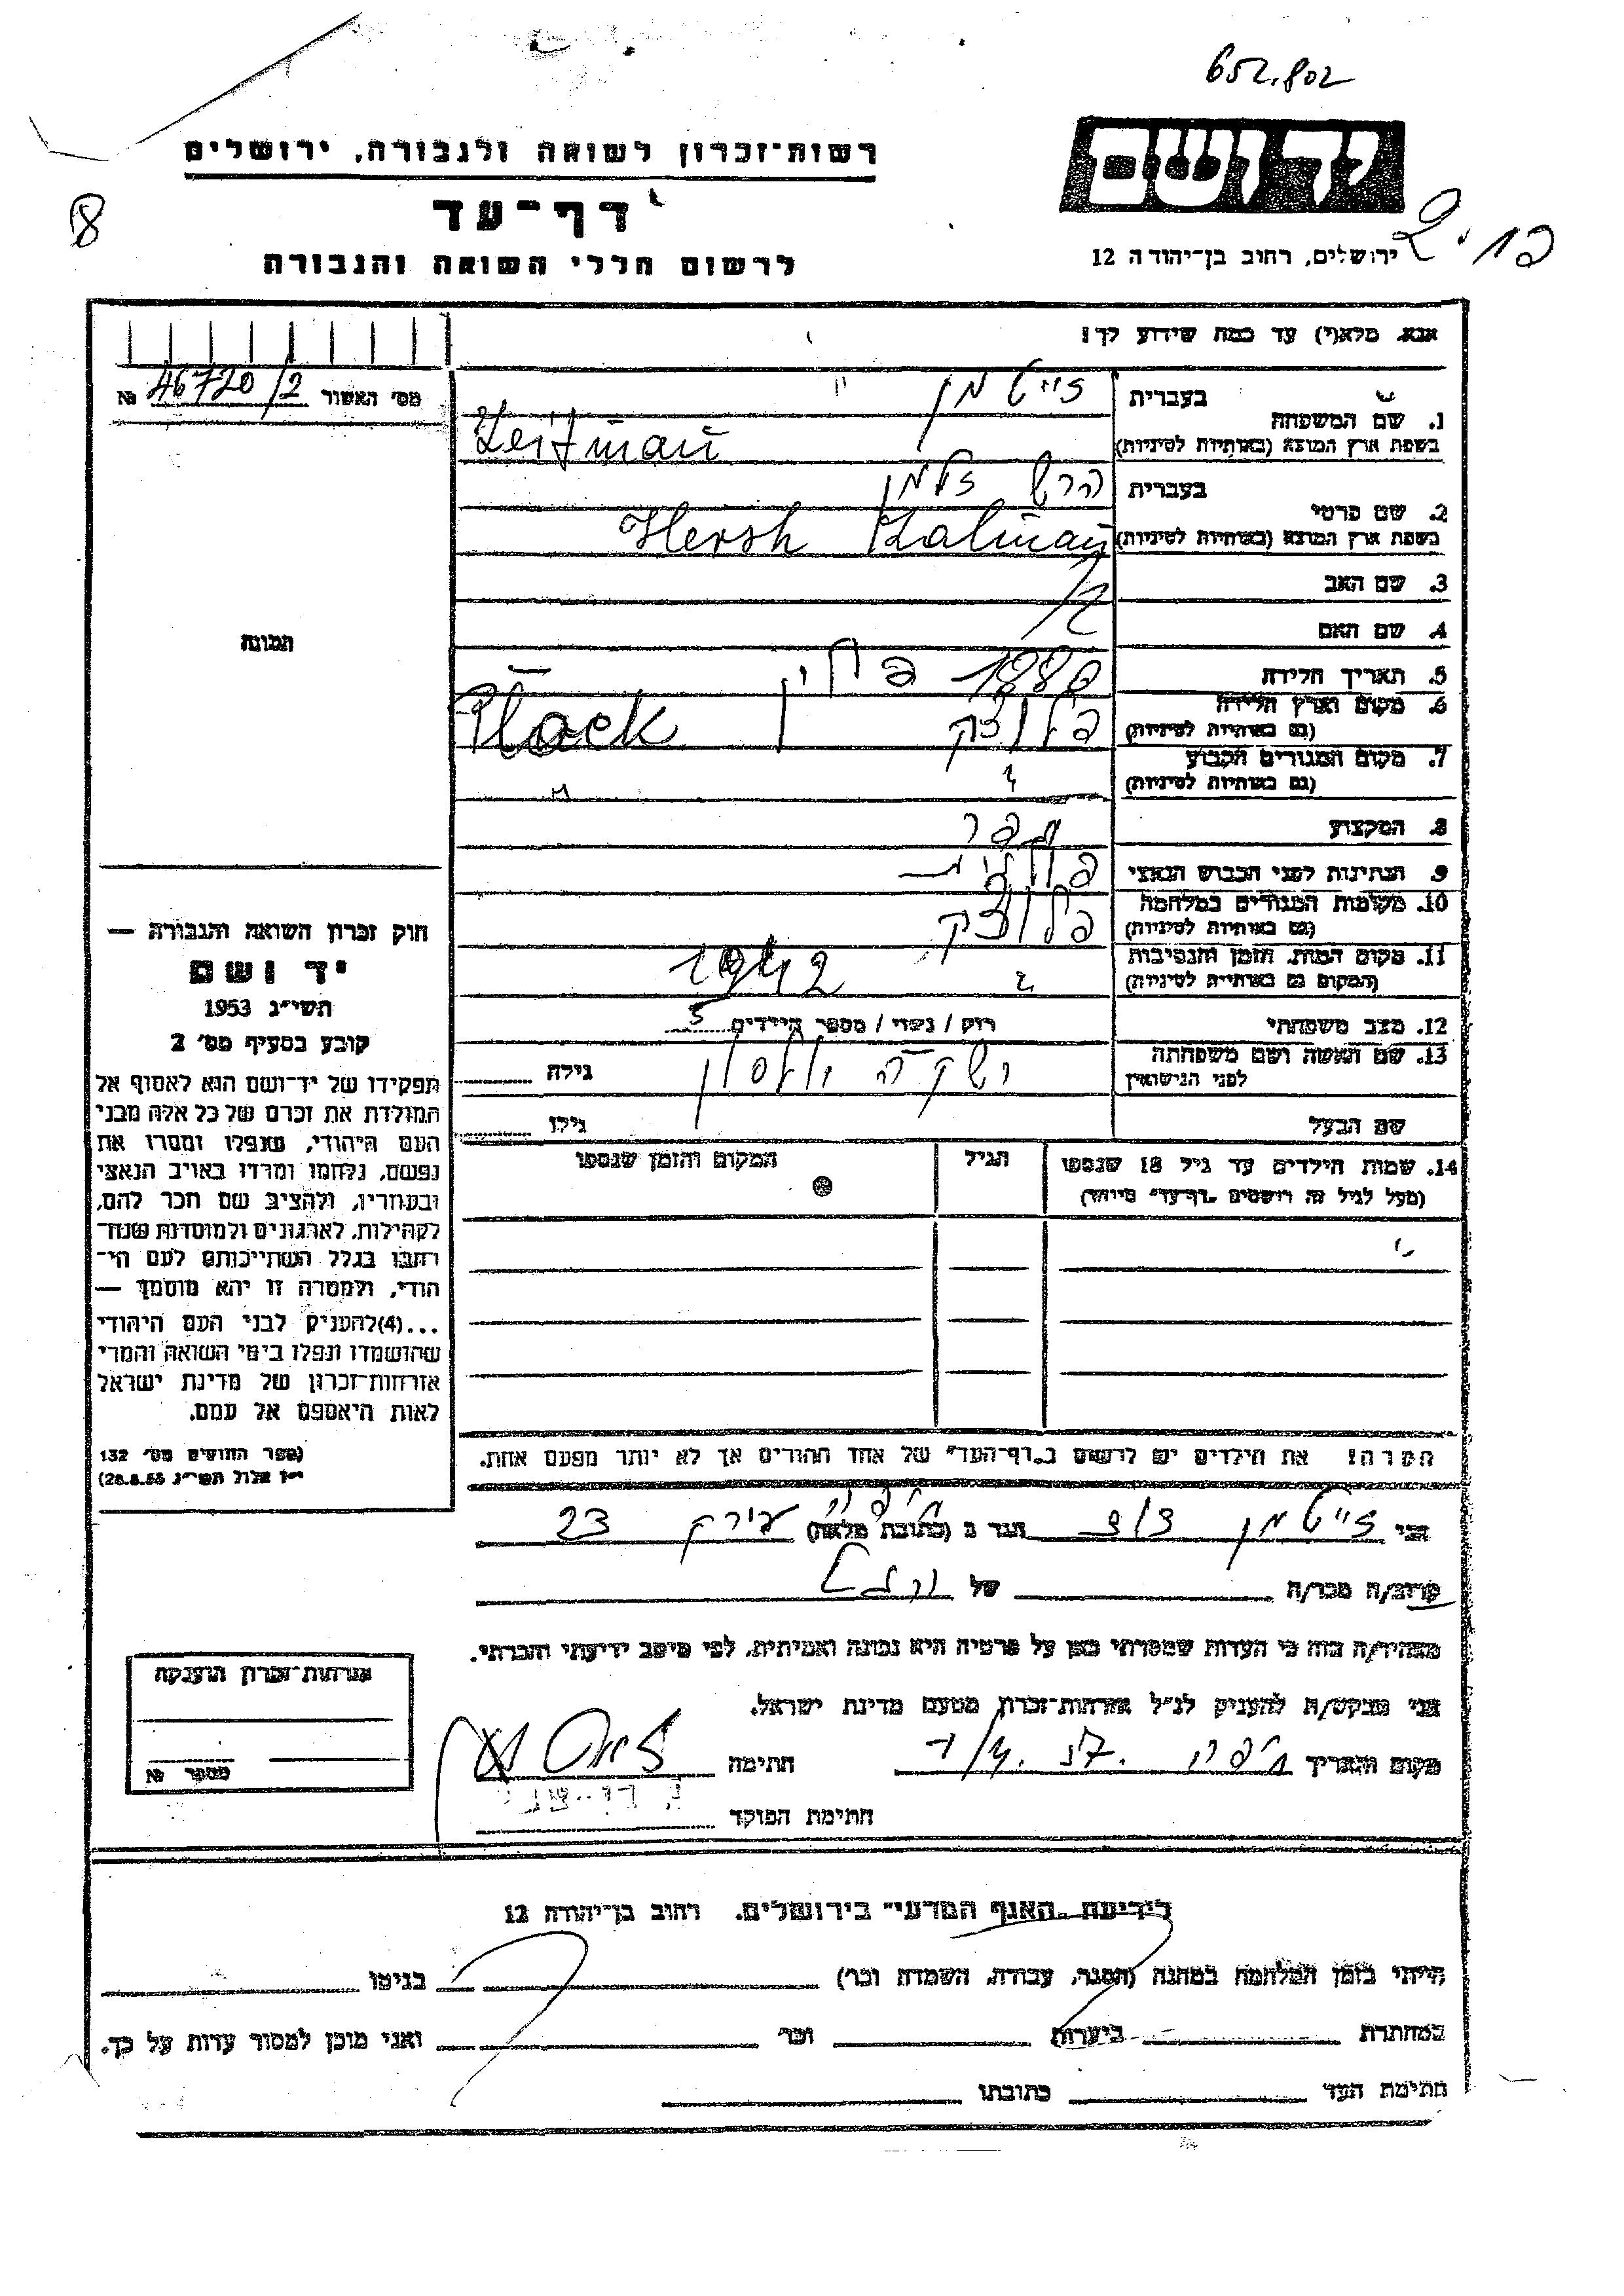 652.802
יד ושם
רשות־זכרון לשואה ולגבורה, ירושלים
דף־עד
8
לרשום חללי השואה והגבורה
ירושלים, רחוב בן־יהודה 12
אנא, מלא(י) עד כמה שידוע לך!
מס׳ האשור 46720/2 №
בעברית זייטמן
1. שם המשפחה
בשפת ארץ המוצא (באותיות לטיניות) Zeitman
בעברית הרש זלמן
2. שם פרטי
בשפת ארץ המוצא (באותיות לטיניות) Hersh Zalman
3. שם האב
4. שם האם
תמונה
5. תאריך הלידה 1880
6. מקום וארץ הלידה פלוצק פולין Płock
(גם באותיות לטיניות)
7. מקום המגורים הקבוע
(גם באותיות לטיניות)
8. המקצוע
9. הנתינות לפני הכבוש הנאצי פולנית
10. מקומות המגורים במלחמה פלוצק
(גם באותיות לטיניות)
11. מקום המות, הזמן והנסיבות 1942
(המקום גם באותיות לטיניות)
12. מצב משפחתי רוק / נשוי / מספר הילדים 5
13. שם האשה ושם משפחתה
לפני הנישואין גילה
שם הבעל גילו
14. שמות הילדים עד גיל 18 שנספו הגיל המקום והזמן שנספו
(מעל לגיל זה רושמים „דף־עד״ מיוחד)
חוק זכרון השואה והגבורה —
יד ושם
תשי״ג 1953
קובע בסעיף מס׳ 2
תפקידו של יד־ושם הוא לאסוף אל
המולדת את זכרם של כל אלה מבני
העם היהודי, שנפלו ומסרו את
נפשם, נלחמו ומרדו באויב הנאצי
ובעוזריו, ולהציב שם וזכר להם,
לקהילות, לארגונים ולמוסדות שנח־
רבו בגלל השתייכותם לעם הי־
הודי, ולמטרה זו יהא מוסמך —
...(4)להעניק לבני העם היהודי
שהושמדו ונפלו בימי השואה והמרי
אזרחות־זכרון של מדינת ישראל
לאות היאספם אל עמם.
(ספר החוקים מס׳ 132
י״ז אלול תשי״ג 28.8.53)
הערה! את הילדים יש לרשום ב„דף־העד״ של אחד ההורים אך לא יותר מפעם אחת.
אני זייטמן הגר ב (כתובת מלאה) חיפה 23
קרוב/ה מכר/ה של
מצהיר/ה בזה כי העדות שמסרתי כאן על פרטיה היא נכונה ואמיתית, לפי מיטב ידיעתי והכרתי.
אני מבקש/ת להעניק לנ״ל אזרחות־זכרון מטעם מדינת ישראל.
מקום ותאריך חיפה חתימה
חתימת הפוקד
אזרחות־זכרון הוענקה
מספר №
לידיעת „האגף המדעי״ בירושלים, רחוב בן־יהודה 12
הייתי בזמן המלחמה במחנה (הסגר, עבודה, השמדה וכו׳) בגיטו
במחתרת ביערות וכו׳ ואני מוכן למסור עדות על כך.
חתימת העד כתובתו